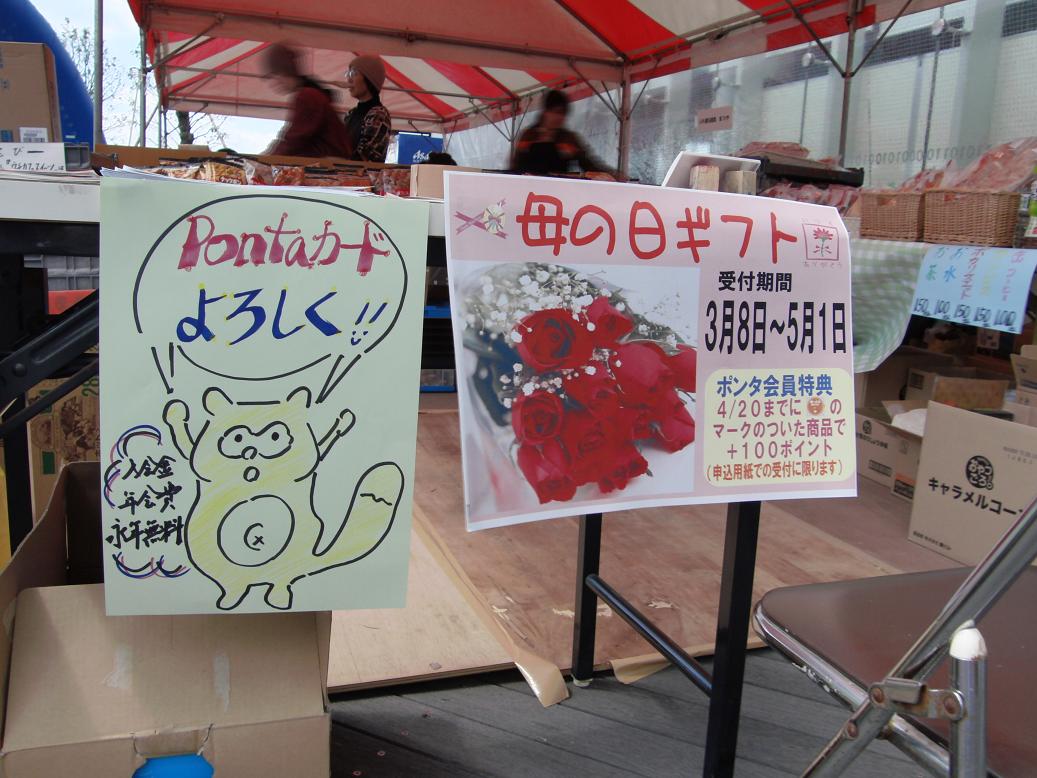 Pontaカード
よろしく!!
入会金
年会費
永年無料
母の日ギフト
ありがとう
受付期間
3月8日～5月1日
ポンタ会員特典
4/20までに の
マークのついた商品で
+100ポイント
(申込用紙での受付に限ります)
お茶 150
お水 100
150
150
100
おやつ
キャラメルコーン